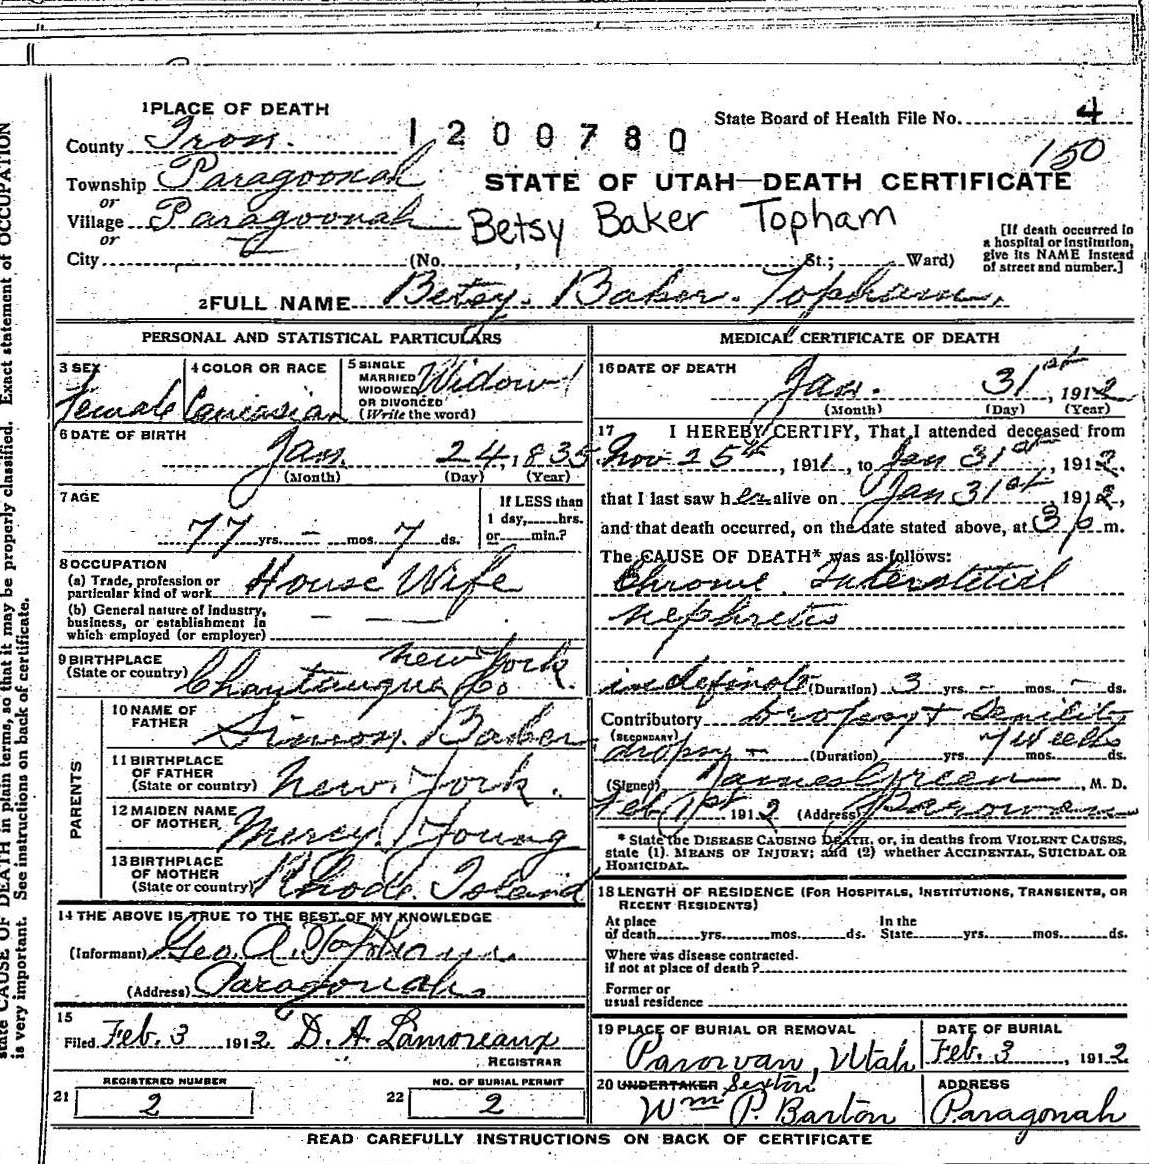 1 PLACE OF DEATH
State Board of Health File No. 4
County Iron.
1200780
150
Township Paragoonah
STATE OF UTAH—DEATH CERTIFICATE
or
Village Paragoonah
Betsy Baker Topham
or
City (No. , St.; Ward)
[If death occurred in
a hospital or institution,
give its NAME instead
of street and number.]
2 FULL NAME Betsy. Baker. Topham.
PERSONAL AND STATISTICAL PARTICULARS
3 SEX
Female
4 COLOR OR RACE
Caucasian
5 SINGLE
MARRIED
WIDOWED
OR DIVORCED
(Write the word)
Widow
6 DATE OF BIRTH
Jan. 24, 1835
(Month) (Day) (Year)
7 AGE
77 yrs. – mos. 7 ds.
If LESS than
1 day, hrs.
or min.?
8 OCCUPATION
(a) Trade, profession or
particular kind of work House Wife
(b) General nature of industry,
business, or establishment in
which employed (or employer) — —
9 BIRTHPLACE
(State or country) Chautauqua Co New York.
PARENTS
10 NAME OF
FATHER Simon. Baker
11 BIRTHPLACE
OF FATHER
(State or country) New York.
12 MAIDEN NAME
OF MOTHER Mercy Young
13 BIRTHPLACE
OF MOTHER
(State or country) Rhode Island
14 THE ABOVE IS TRUE TO THE BEST OF MY KNOWLEDGE
(Informant) Geo. A. Topham.
(Address) Paragonah
15
Filed Feb. 3 1912 D. A. Lamoreaux
REGISTRAR
REGISTERED NUMBER
21 2
NO. OF BURIAL PERMIT
22 2
MEDICAL CERTIFICATE OF DEATH
16 DATE OF DEATH
Jan. 31st, 1912
(Month) (Day) (Year)
17 I HEREBY CERTIFY, That I attended deceased from
Nov 25th, 1911, to Jan 31st, 1912.
that I last saw her alive on Jan 31st, 1912,
and that death occurred, on the date stated above, at 3 p m.
The CAUSE OF DEATH* was as follows:
Chronic Interstitial
nephretis
indefinate (Duration) 3 yrs. – mos. – ds.
Contributory Dropsy + Senility
(SECONDARY)
dropsy – (Duration) yrs. 7 weeks mos. ds.
(Signed) James Green, M. D.
Feb 1st 1912 (Address) Parowan
* State the DISEASE CAUSING DEATH, or, in deaths from VIOLENT CAUSES,
state (1) MEANS OF INJURY; and (2) whether ACCIDENTAL, SUICIDAL OR
HOMICIDAL.
18 LENGTH OF RESIDENCE (FOR HOSPITALS, INSTITUTIONS, TRANSIENTS, OR
RECENT RESIDENTS)
At place
of death yrs. mos. ds.
In the
State yrs. mos. ds.
Where was disease contracted.
if not at place of death?
Former or
usual residence
19 PLACE OF BURIAL OR REMOVAL
Parowan, Utah
DATE OF BURIAL
Feb. 3, 1912
20 UNDERTAKER Sexton
Wm P. Barton
ADDRESS
Paragonah
READ CAREFULLY INSTRUCTIONS ON BACK OF CERTIFICATE
state CAUSE OF DEATH in plain terms, so that it may be properly classified. Exact statement of OCCUPATION
is very important. See instructions on back of certificate.